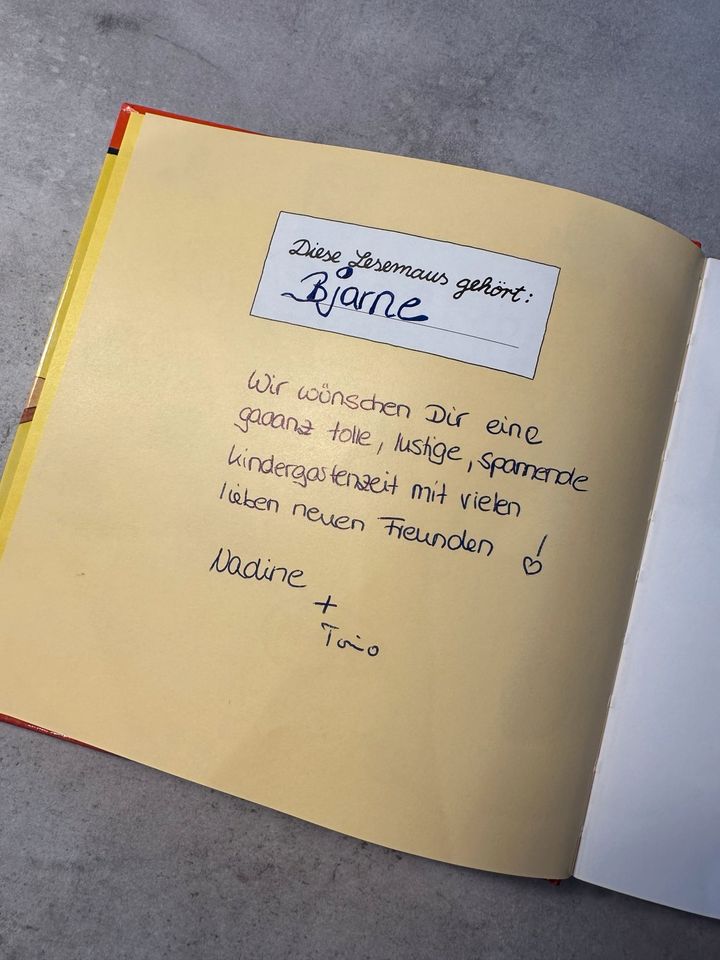 Diese Lesemaus gehört:
Bjarne
Wir wünschen Dir eine
gaaanz tolle, lustige, spannende
Kindergartenzeit mit vielen
lieben neuen Freunden !
♡
Nadine
+